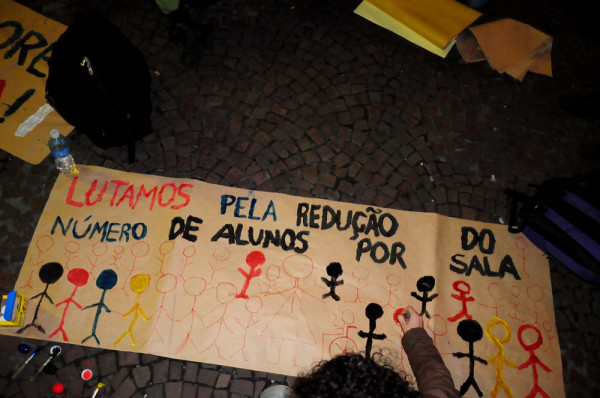 LUTAMOS PELA REDUÇÃO DO
NÚMERO DE ALUNOS POR SALA